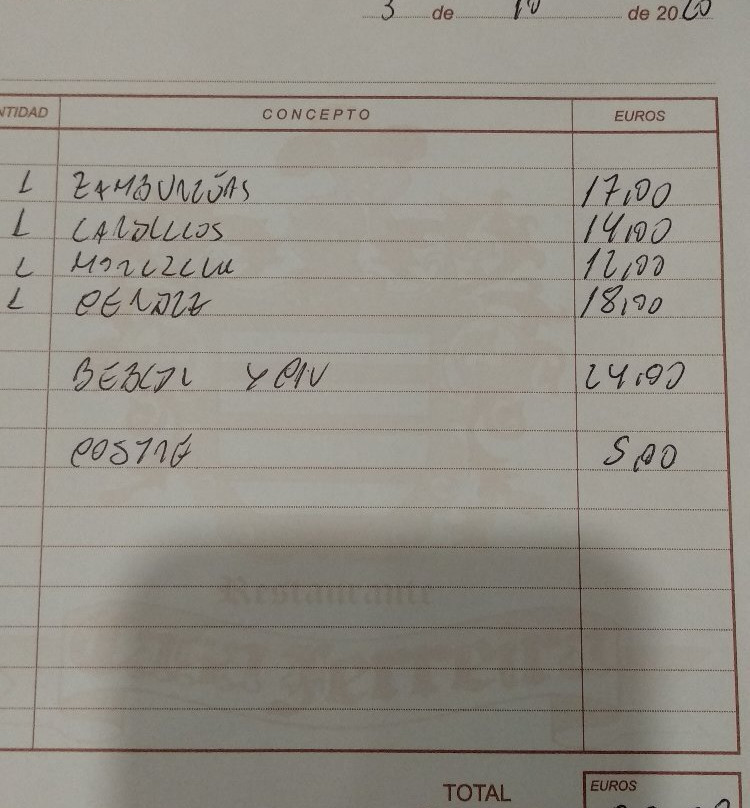 3 de 10 de 2020
NTIDAD CONCEPTO EUROS
1 ZAMBURIÑAS 17,00
1 CARDILLOS 14,00
1 MORCILLA 12,00
1 18,00
BEBIDA Y PAN 24,00
POSTRE 5,00
Restaurante
TOTAL EUROS